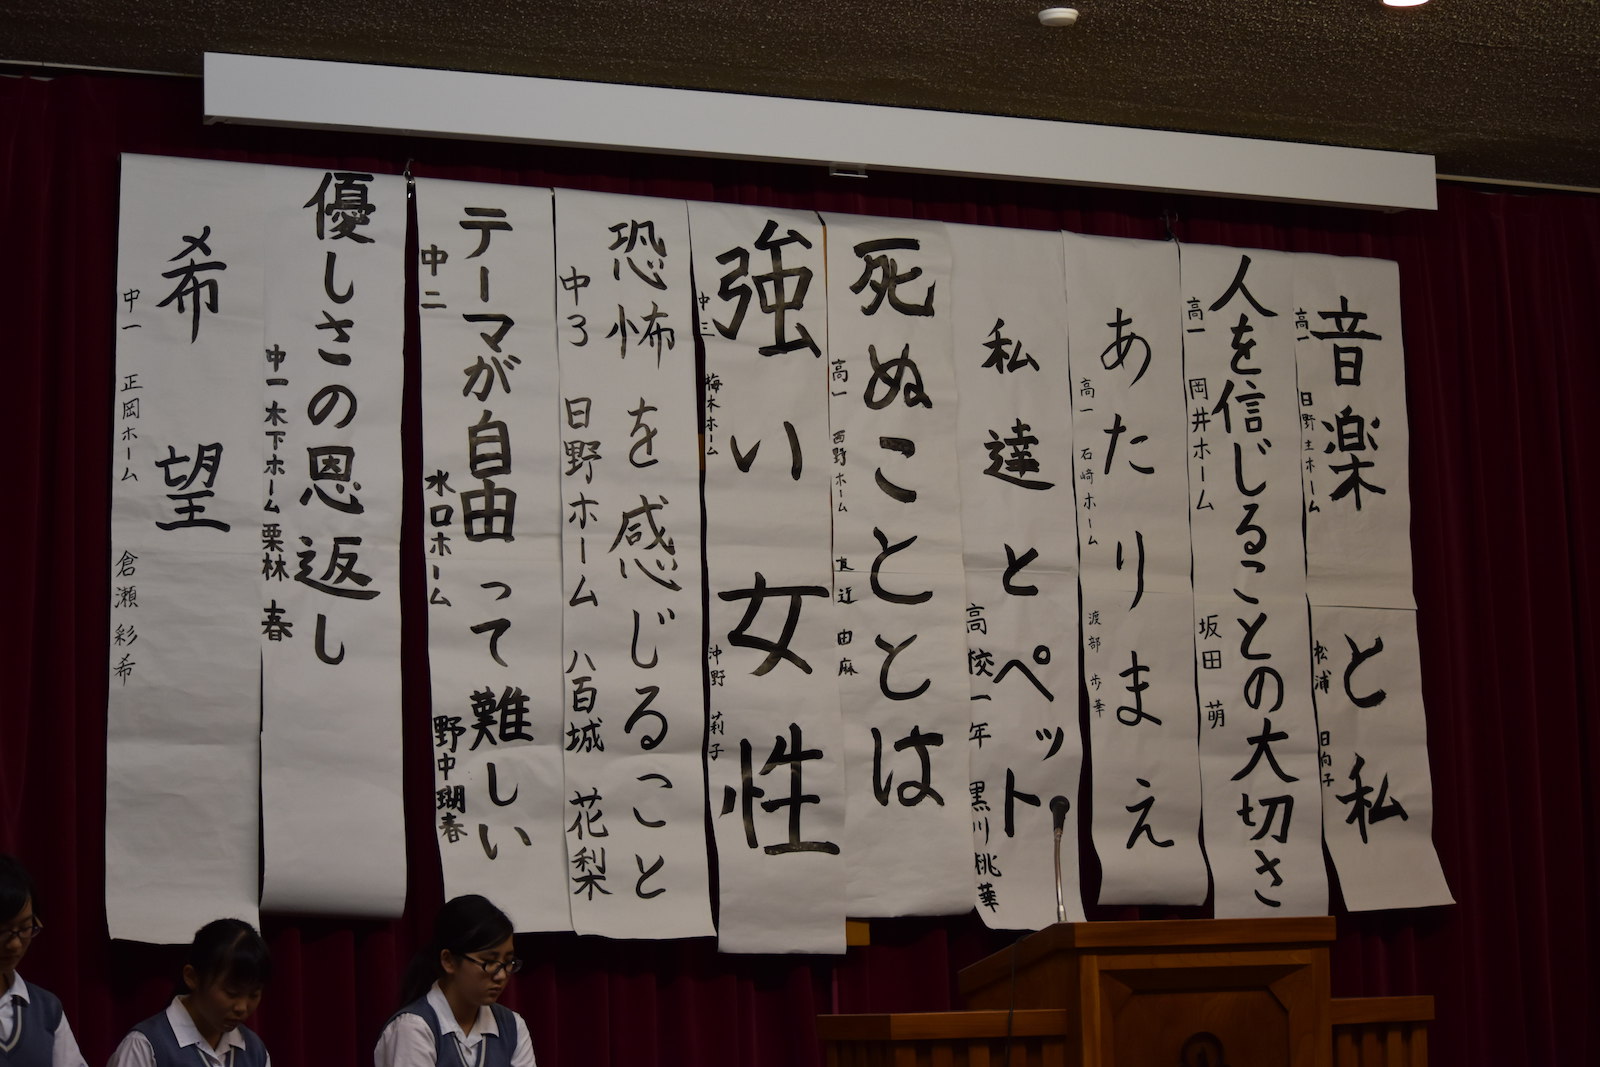 音楽と私
高一 日野土ホーム 松浦 日向子
人を信じることの大切さ
高一 岡井ホーム 坂田 萌
あたりまえ
高一 石崎ホーム 渡部 歩華
私達とペット
高校一年 黒川桃華
死ぬこととは
高一 西野ホーム 由麻
強い女性
中三 梅木ホーム 沖野 莉子
恐怖を感じること
中3 日野ホーム 八百城 花梨
テーマが自由って難しい
中二 水口ホーム 野中瑚春
優しさの恩返し
中一木下ホーム 栗林 春
希望
中一 正岡ホーム 倉瀬 彩希